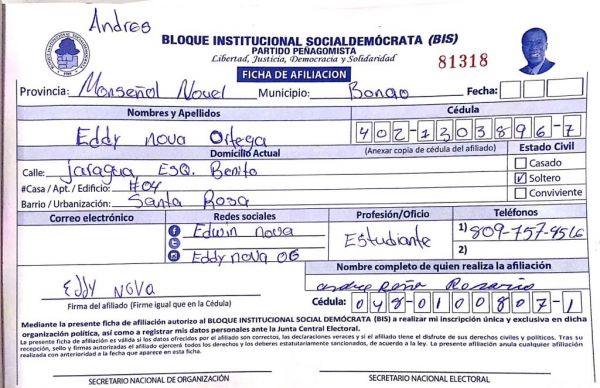 Andres
BLOQUE INSTITUCIONAL SOCIALDEMÓCRATA (BIS)
PARTIDO PEÑAGOMISTA
Libertad, Justicia, Democracia y Solidaridad
81318
FICHA DE AFILIACION
Provincia: Monseñol Nouel Municipio: Bonao Fecha:
Nombres y Apellidos Cédula
Eddy nova Ortega 402-1303896-7
Domicilio Actual (Anexar copia de cédula del afiliado) Estado Civil
Calle: Jaragua, ESQ. Benito Casado
#Casa / Apt. / Edificio: #04 Soltero
Barrio / Urbanización: Santa Rosa Conviviente
Correo electrónico Redes sociales Profesión/Oficio Teléfonos
Edwin nova Estudiante 1) 809-757-4516
2)
Eddy nova OG
Nombre completo de quien realiza la afiliación
Eddy NOVA Rosario
Firma del afiliado (Firme igual que en la Cédula) Cédula: 048-0100807-1
Mediante la presente ficha de afiliación autorizo al BLOQUE INSTITUCIONAL SOCIAL DEMÓCRATA (BIS) a realizar mi inscripción única y exclusiva en dicha
organización política, así como a registrar mis datos personales ante la Junta Central Electoral.
La presente ficha de afiliación es válida si los datos ofrecidos por el afiliado son correctos, las declaraciones veraces y si el afiliado tiene el disfrute de sus derechos civiles y políticos. Tras su
recepción, sello y firmas autorizadas el afiliado ejercerá todos los derechos y los deberes estatutariamente sancionados, de acuerdo a la ley. La presente afiliación anula cualquier afiliación
realizada con anterioridad a la fecha que aparece en esta ficha.
SECRETARIO NACIONAL DE ORGANIZACIÓN SECRETARIO NACIONAL ELECTORAL